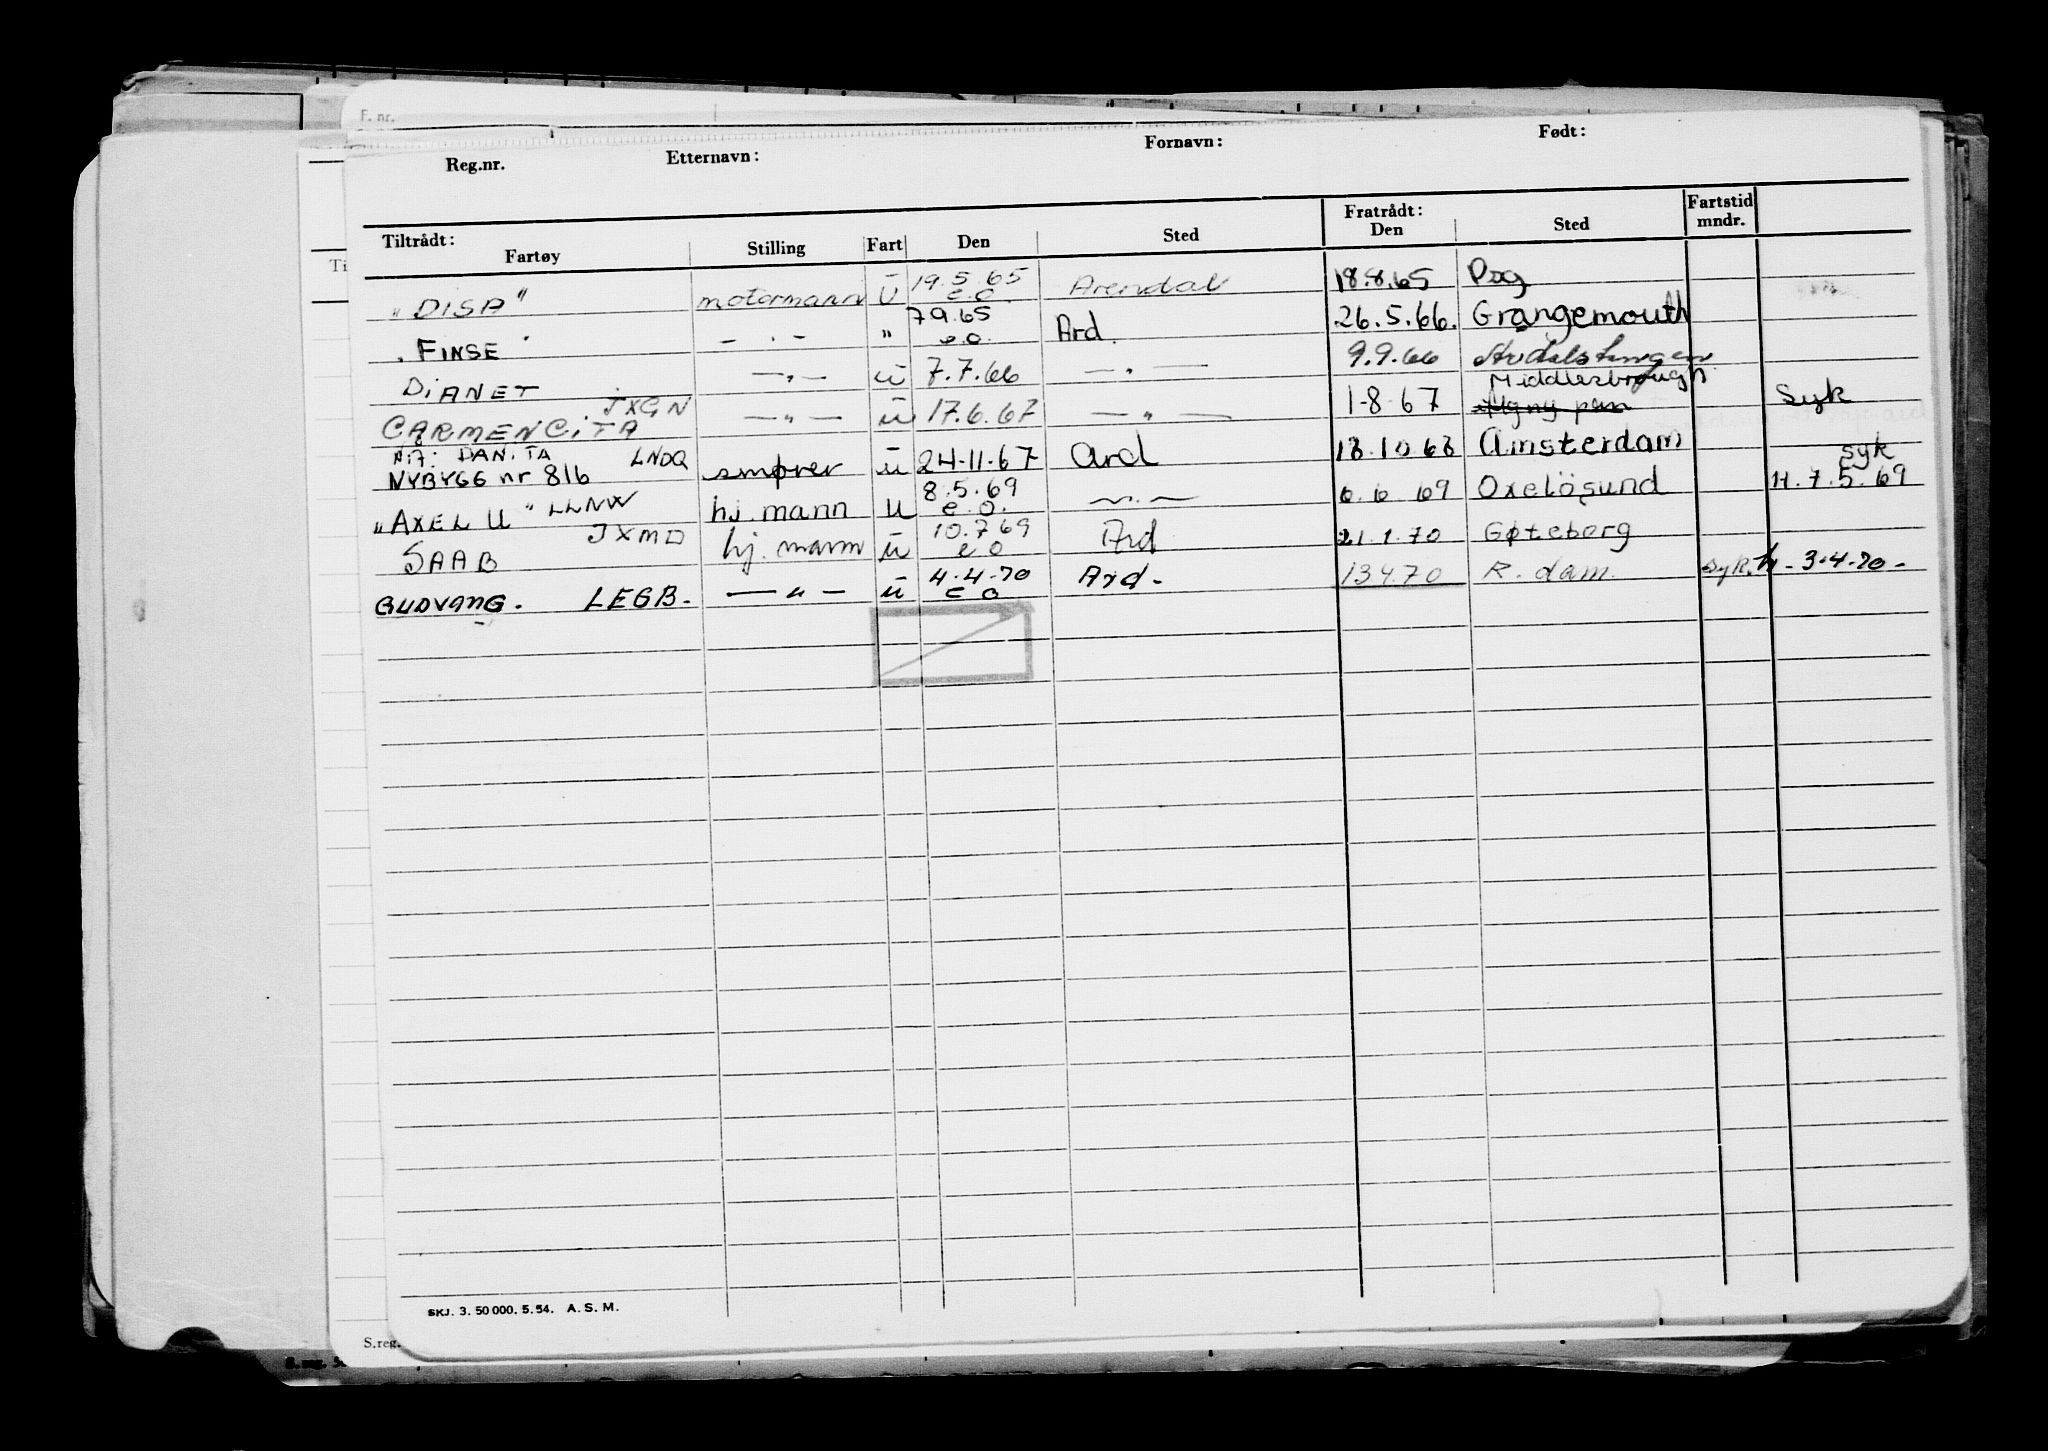 F. nr.
Reg.nr. Etternavn: Fornavn: Født:
Tiltrådt: Fratrådt: Fartstid
Fartøy Stilling Fart Den Sted Den Sted mndr.
Ti
"DISA" motormann U 19.5.65 e.o. Arendal 18.8.65 Psg
"FINSE" — " — " 7.9.65 e.o. Ard. 26.5.66. Grangemouth
DIANET — " — u 7.7.66 — " — 9.9.66
CARMENCITA JXGN — " — u 17.6.67 — " — 1-8-67 Middlesbrough Syk
nå: DANITA LNDQ
NYBYGG nr 816 smører u 24-11-67 Ard 18.10.68 Amsterdam
"AXEL U" LLNW hj. mann U 8.5.69 e.o. — " — 6.6.69 Oxelösund syk H.7.5.69
SAAB JXMD hj. mann u 10.7.69 e o Ard 21.1.70 Gøteborg
GUDVANG. LEGB. — " — u 4-4-70 e o Ard- 13.4.70 R. dam. syk. H-3-4-70-
SKJ. 3. 50 000. 5. 54. A. S. M.
S.reg.